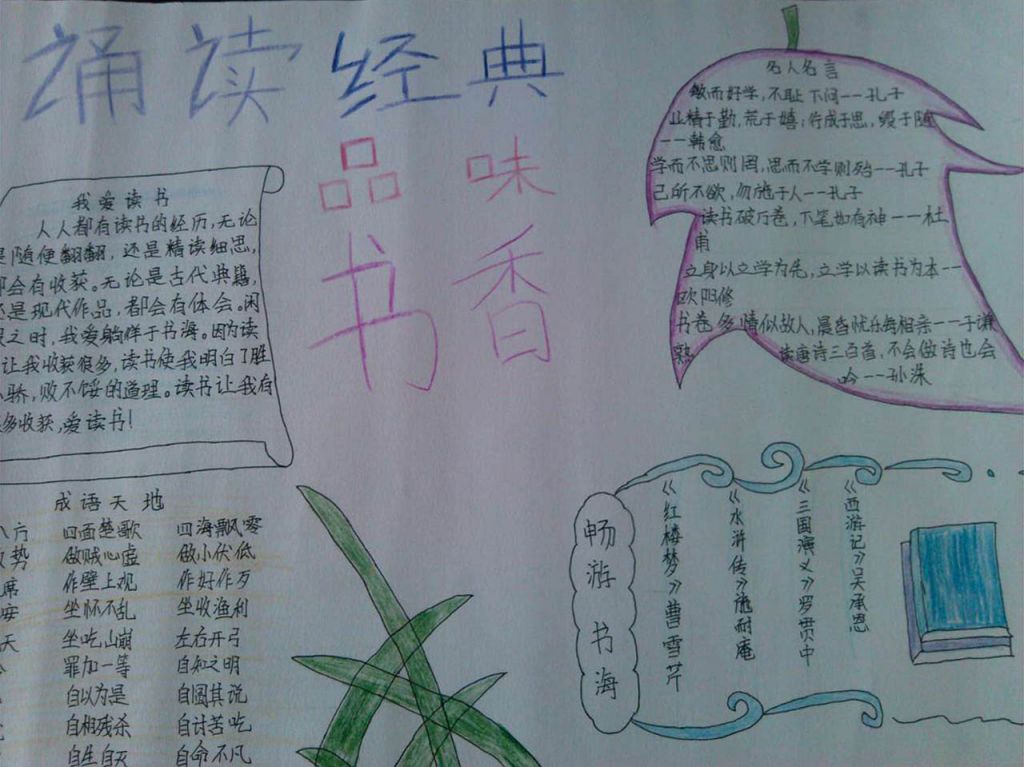 诵读经典
品味
书香
我爱读书
人人都有读书的经历,无论
是随便翻翻,还是精读细思,
都会有收获。无论是古代典籍,
还是现代作品,都会有体会。闲
暇之时,我爱躺徉于书海。因为读
让我收获很多,读书使我明白了胜
不骄,败不馁的道理。读书让我有
多收获,爱读书!
名人名言
敏而好学,不耻下问--孔子
业精于勤,荒于嬉;行成于思,毁于随
--韩愈
学而不思则罔,思而不学则殆--孔子
己所不欲,勿施于人--孔子
读书破万卷,下笔如有神--杜
甫
立身以立学为先,立学以读书为本--
欧阳修
书卷多情似故人,晨昏忧乐每相亲--于谦
熟读唐诗三百首,不会做诗也会
吟--孙洙
成语天地
八方 四面楚歌 四海飘零
势 做贼心虚 做小伏低
席 作壁上观 作好作歹
安 坐怀不乱 坐收渔利
天 坐吃山崩 左右开弓
罪加一等 自知之明
自以为是 自圆其说
自相残杀 自讨苦吃
自生自灭 自命不凡
畅游书海
《红楼梦》曹雪芹
《水浒传》施耐庵
《三国演义》罗贯中
《西游记》吴承恩